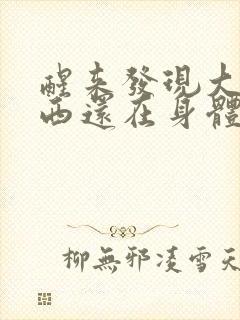 醒來發現大
西還在身體
柳無邪凌雪天